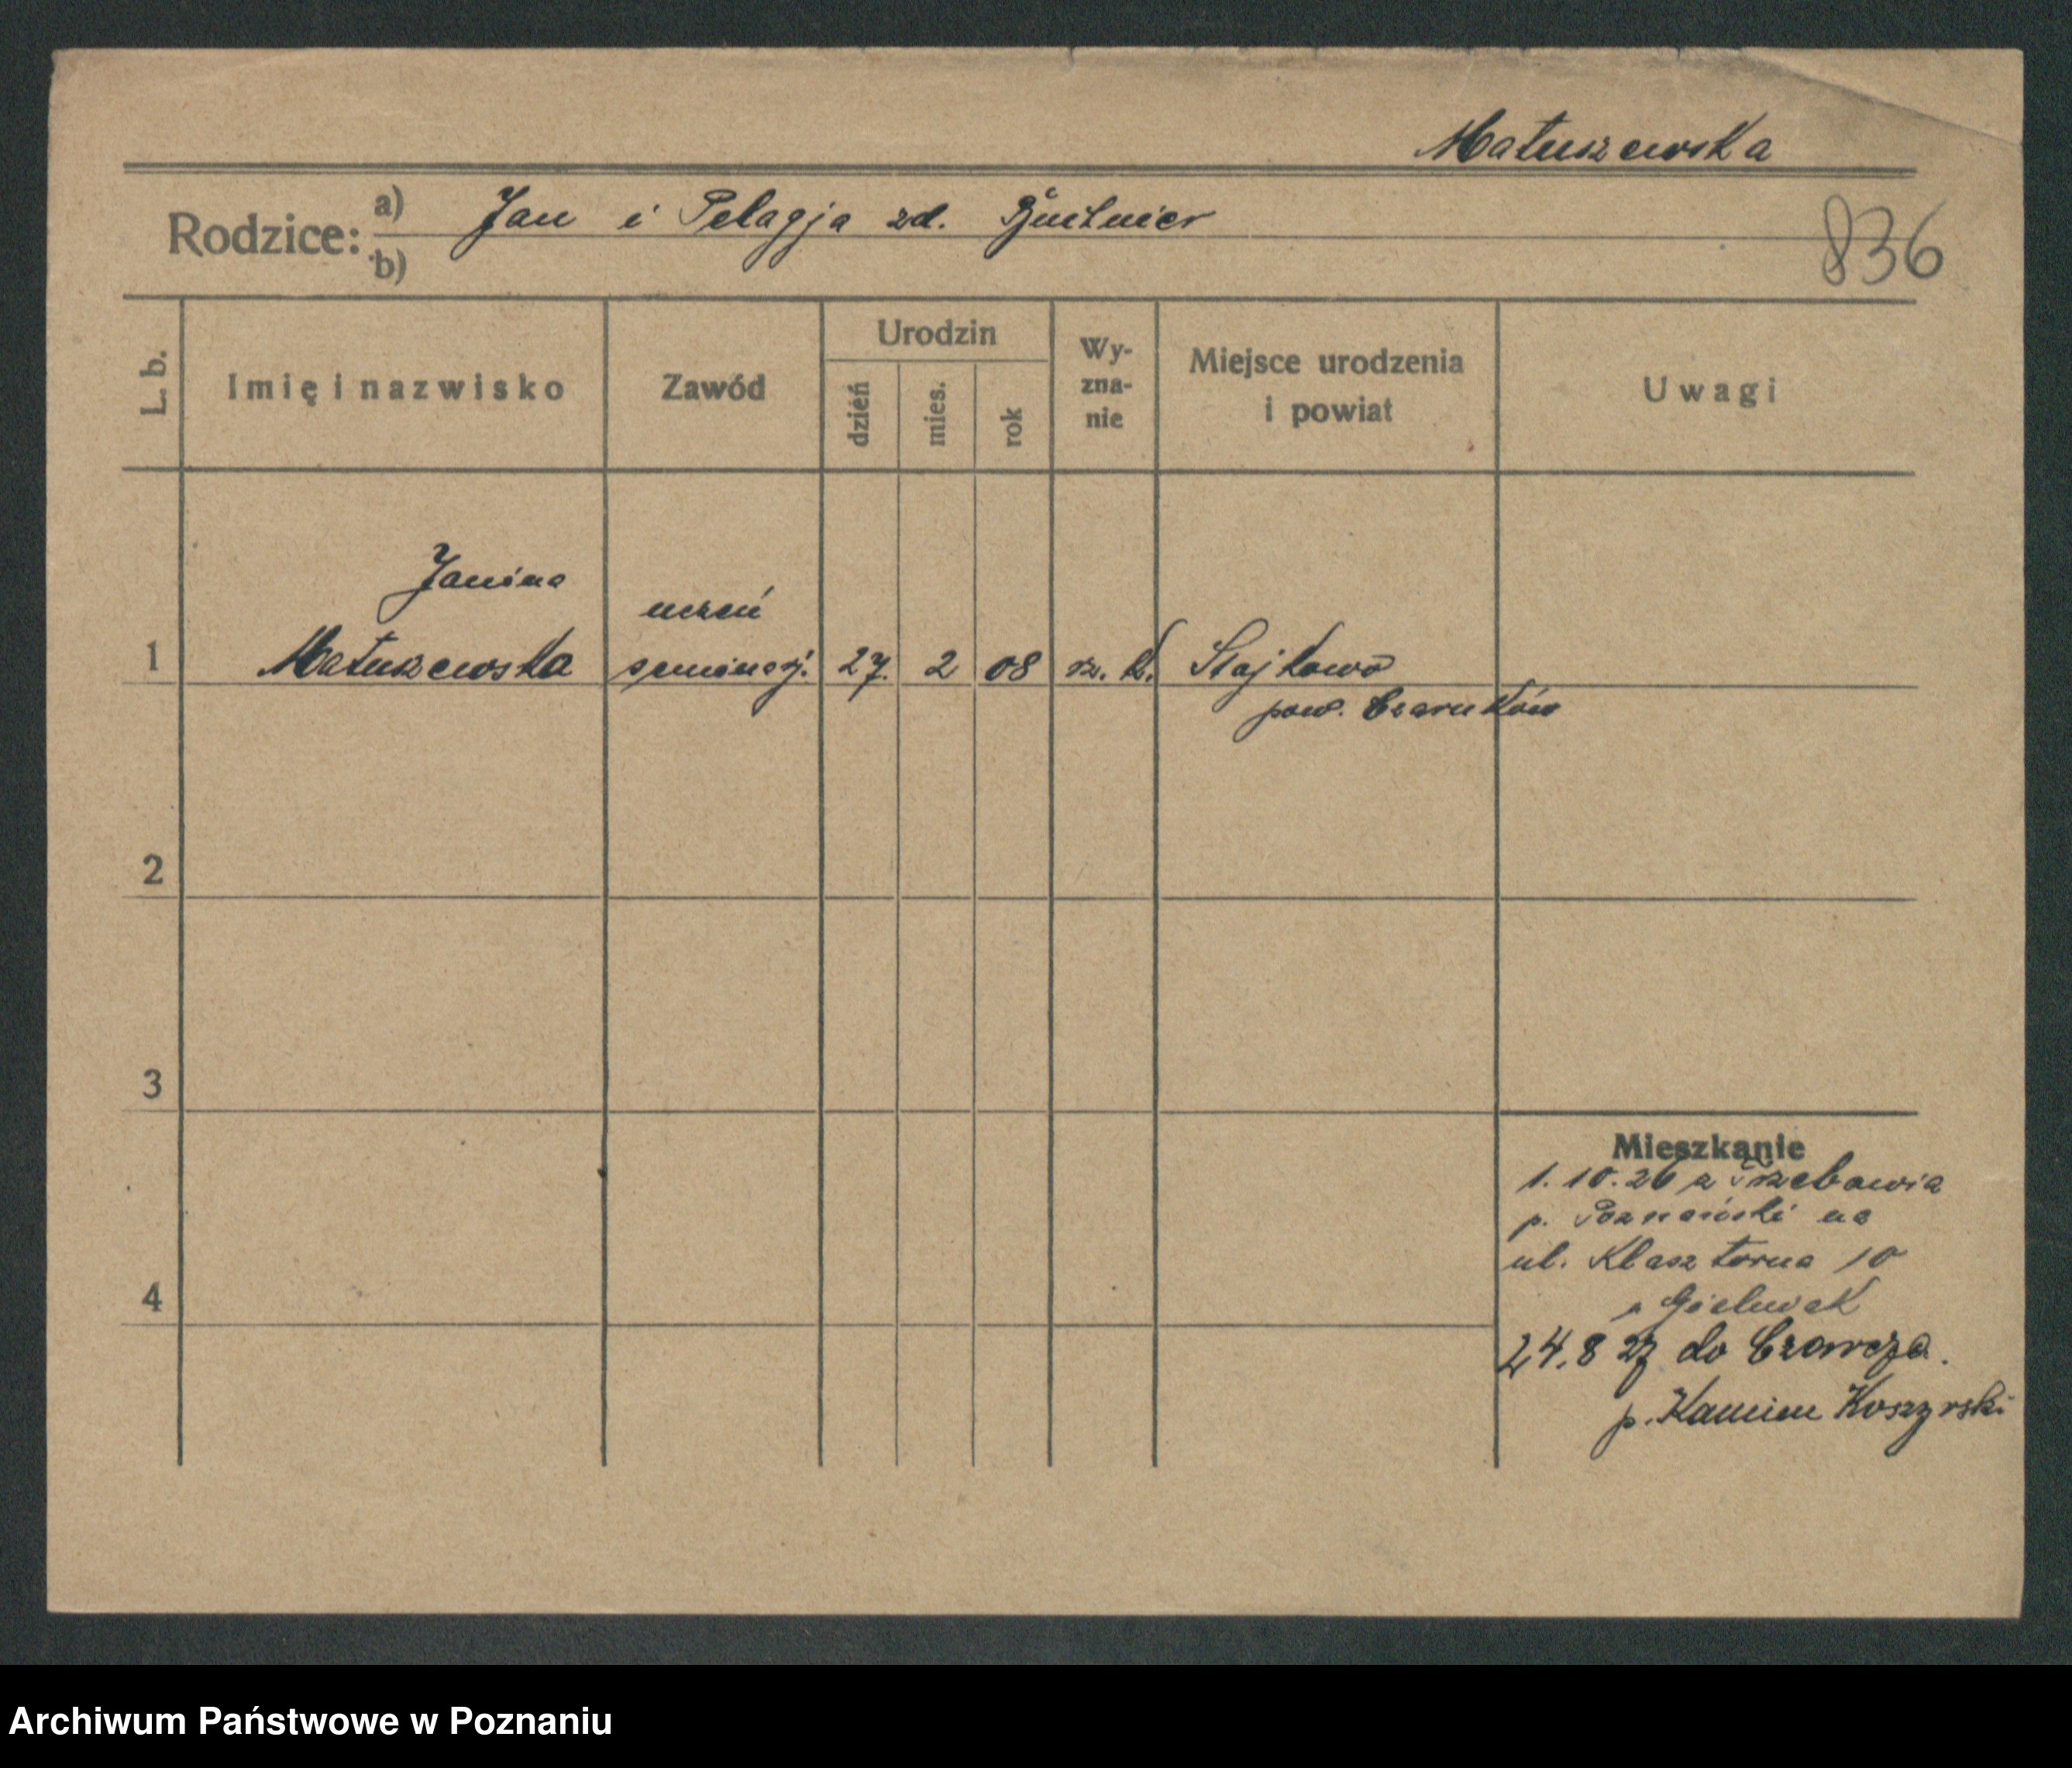 Matuszewska
Rodzice: a) Jan i Pelagja zd.
b)
836
L. b.
Imię i nazwisko
Zawód
Urodzin
dzień
mies.
rok
Wy-
zna-
nie
Miejsce urodzenia
i powiat
Uwagi
Janina
uczeń
1 Matuszewska seminarj. 27. 2 08 rz. k. Stajkowo
pow. Czarnków
2
3
Mieszkanie
1. 10. 26 z Trzebawia
p. Poznański na
ul. Klasztorna 10
4
24. 8 27 do
p. Kamien Koszyrski
Archiwum Państwowe w Poznaniu